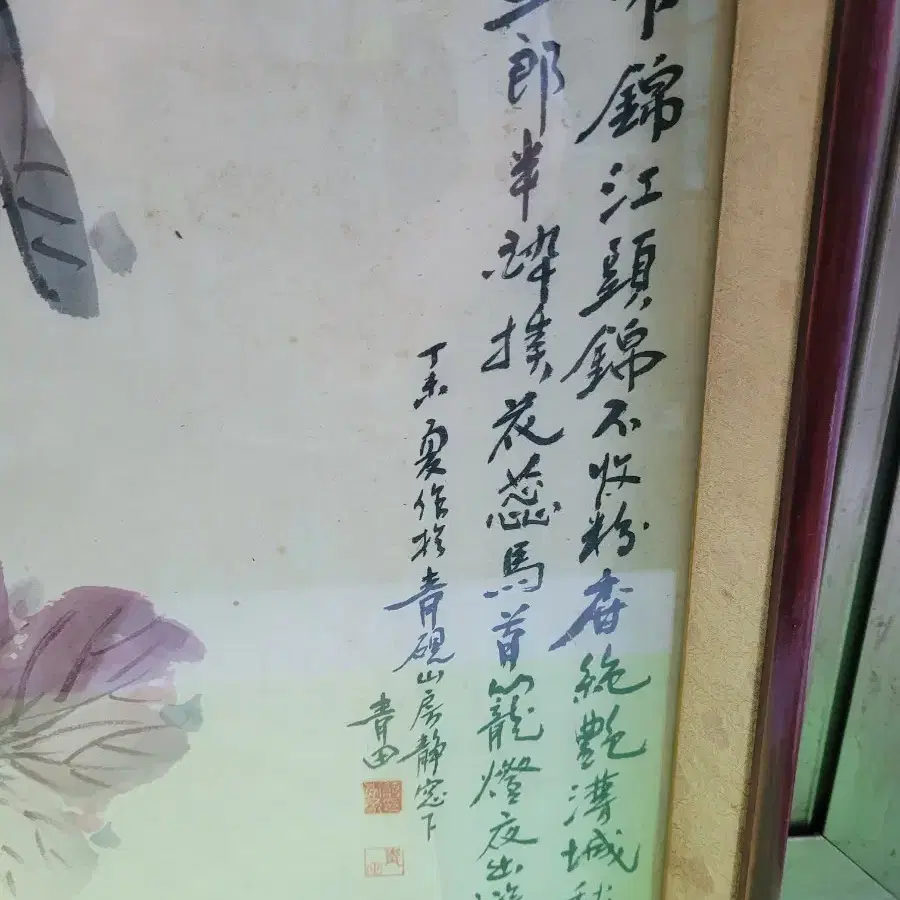 錦江頭錦不收粉香絶艷満城
郎半酔撲花蕊馬首籠燈夜出
丁未夏作於青硯山房静窓下
青田